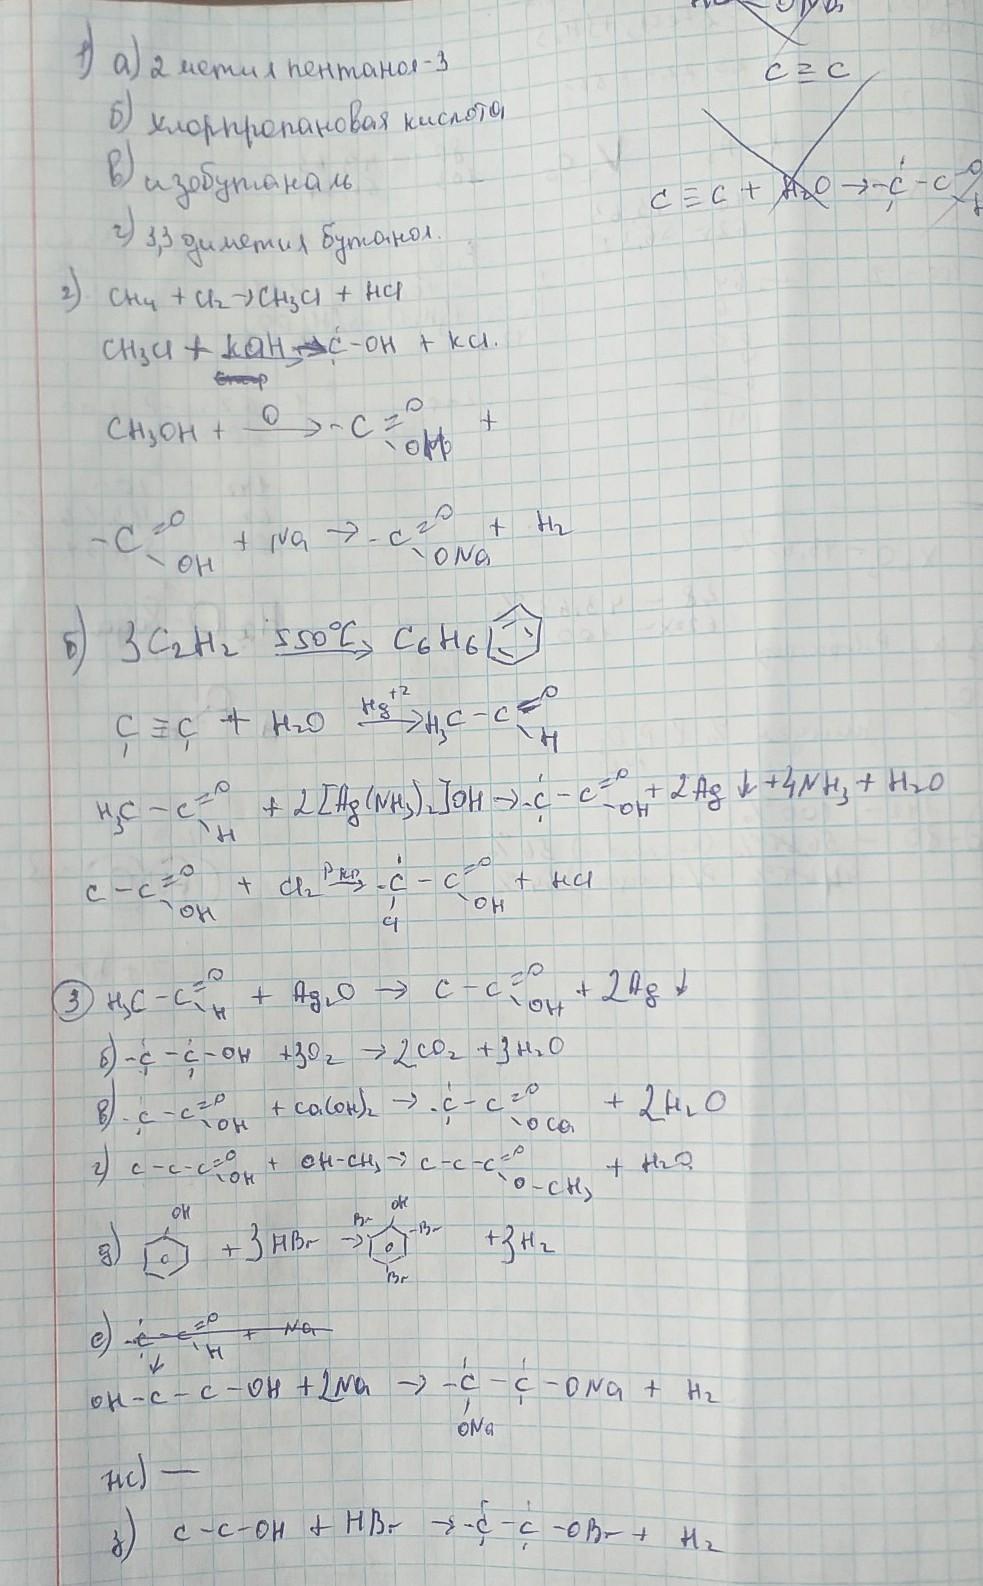 C ≡ C
1) а) 2 метил пентанол-3
б) хлорпропановая кислота
C ≡ C + H₂O → -C - C
в) изобутаналь
г) 3,3 диметил бутанол.
2) CH₄ + Cl₂ → CH₃Cl + HCl
CH₃Cl + KOH → C-OH + KCl.
CH₃OH + O → -C =O
- C =O OH + Na → -C =O ONa + H₂
б) 3C₂H₂ 550°C → C₆H₆
C ≡ C + H₂O Hg⁺² → H₃C - C =O H
H₃C - C =O H + 2[Ag(NH₃)₂]OH → -C - C =O OH + 2Ag ↓ + 4NH₃ + H₂O
C - C =O OH + Cl₂ Pкр → -C - C =O OH + HCl
Cl
3 H₃C - C =O H + Ag₂O → C - C =O OH + 2Ag ↓
б) -C - C - OH + 3O₂ → 2CO₂ + 3H₂O
в) -C - C =O OH + Ca(OH)₂ → -C - C =O OCa + 2H₂O
г) C - C - C =O OH + OH-CH₃ → C - C - C =O O-CH₃ + H₂O
OH OH
д) + 3HBr → Br Br + 3H₂
Br
е) -C - C =O H + Na
OH - C - C - OH + 2Na → -C - C - ONa + H₂
ONa
ж) —
з) C - C - OH + HBr → -C - C - OBr + H₂